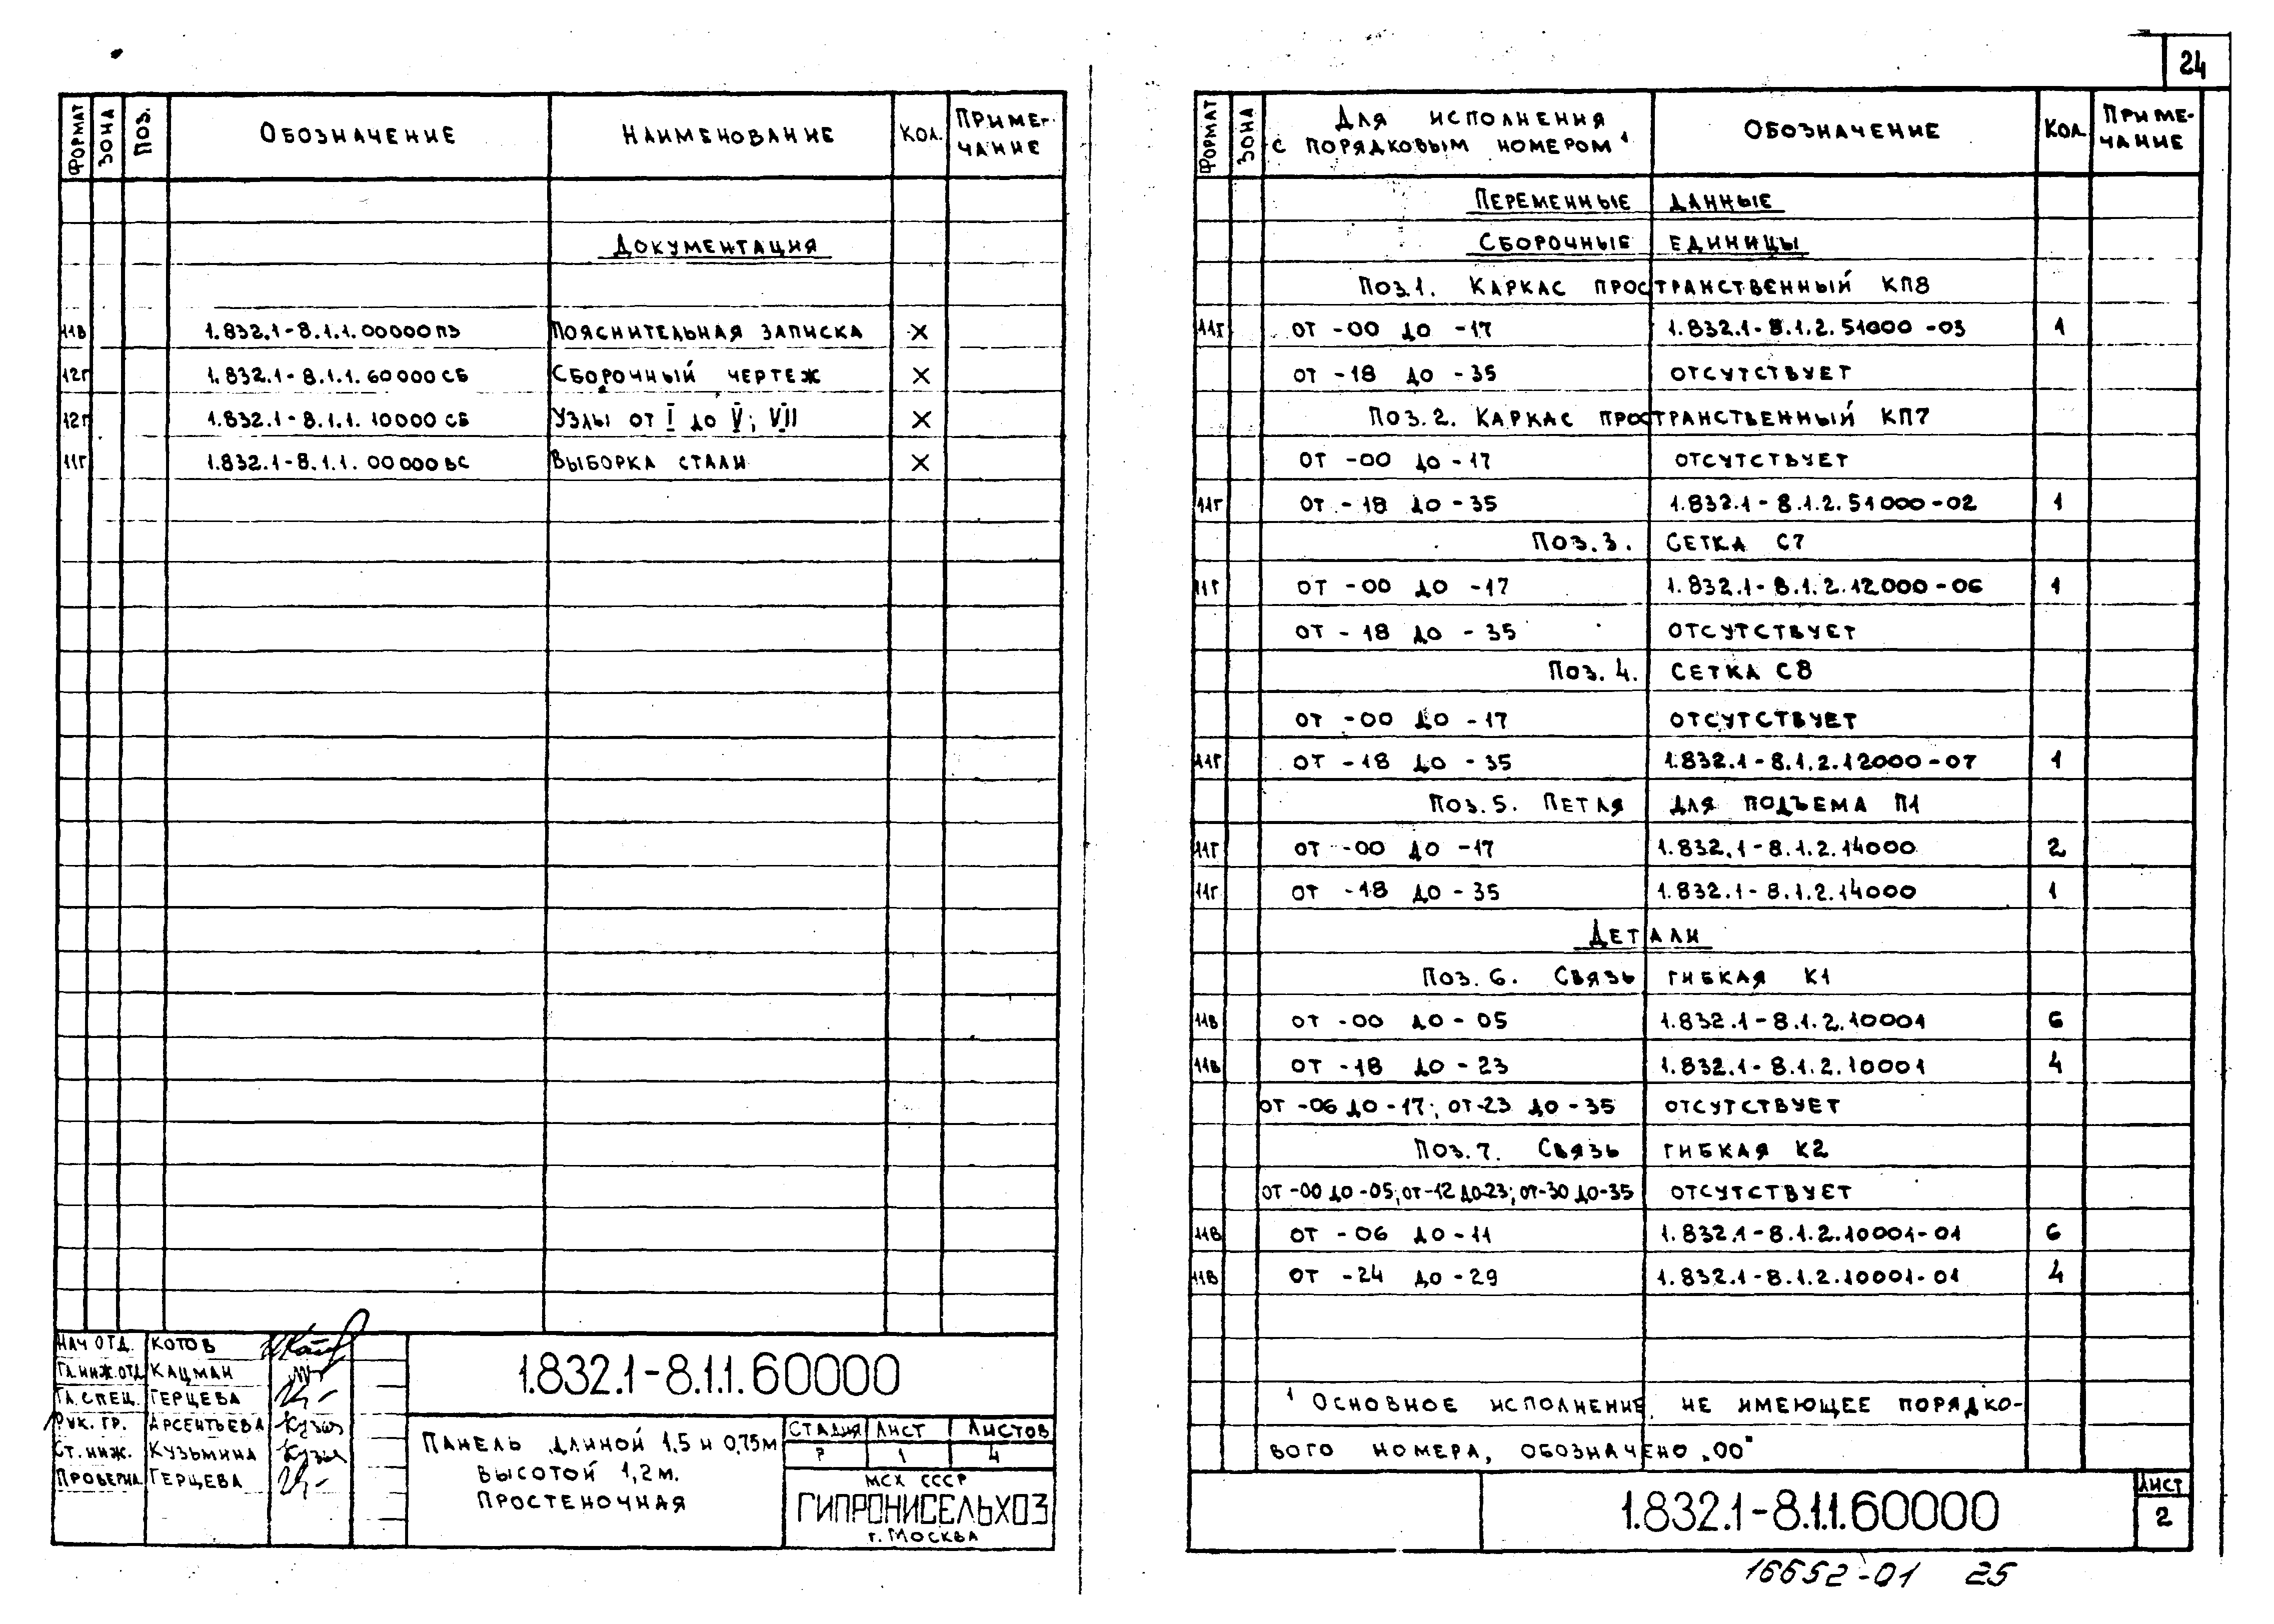 ФОРМАТ ЗОНА ПОЗ. ОБОЗНАЧЕНИЕ НАИМЕНОВАНИЕ КОЛ. ПРИМЕ-
ЧАНИЕ
ДОКУМЕНТАЦИЯ
11В 1.832.1-8.1.1.00000ПЗ ПОЯСНИТЕЛЬНАЯ ЗАПИСКА X
12Г 1.832.1-8.1.1.60000СБ СБОРОЧНЫЙ ЧЕРТЕЖ X
12Г 1.832.1-8.1.1.10000СБ УЗЛЫ ОТ I ДО V; VII X
11Г 1.832.1-8.1.1.00000ВС ВЫБОРКА СТАЛИ X
НАЧ ОТД. КОТОВ
ГЛ.ИНЖ.ОТД КАЦМАН
ГЛ.СПЕЦ. ГЕРЦЕВА
РУК. ГР. АРСЕНТЬЕВА
СТ.ИНЖ. КУЗЬМИНА
ПРОВЕРИЛ ГЕРЦЕВА
1.832.1-8.1.1.60000
ПАНЕЛЬ ДЛИНОЙ 1,5 И 0,75М
ВЫСОТОЙ 1,2М.
ПРОСТЕНОЧНАЯ
СТАДИЯ ЛИСТ ЛИСТОВ
Р 1 4
МСХ СССР
ГИПРОНИСЕЛЬХОЗ
Г. МОСКВА
24
ФОРМАТ ЗОНА ДЛЯ ИСПОЛНЕНИЯ
С ПОРЯДКОВЫМ НОМЕРОМ¹ ОБОЗНАЧЕНИЕ КОЛ ПРИМЕ-
ЧАНИЕ
ПЕРЕМЕННЫЕ ДАННЫЕ
СБОРОЧНЫЕ ЕДИНИЦЫ
ПОЗ.1. КАРКАС ПРОСТРАНСТВЕННЫЙ КП8
11Г ОТ -00 ДО -17 1.832.1-8.1.2.51000-03 1
ОТ -18 ДО -35 ОТСУТСТВУЕТ
ПОЗ.2. КАРКАС ПРОСТРАНСТВЕННЫЙ КП7
ОТ -00 ДО -17 ОТСУТСТВУЕТ
11Г ОТ -18 ДО -35 1.832.1-8.1.2.51000-02 1
ПОЗ.3. СЕТКА С7
11Г ОТ -00 ДО -17 1.832.1-8.1.2.12000-06 1
ОТ -18 ДО -35 ОТСУТСТВУЕТ
ПОЗ.4. СЕТКА С8
ОТ -00 ДО -17 ОТСУТСТВУЕТ
11Г ОТ -18 ДО -35 1.832.1-8.1.2.12000-07 1
ПОЗ.5. ПЕТЛЯ ДЛЯ ПОДЪЕМА П1
11Г ОТ -00 ДО -17 1.832.1-8.1.2.14000 2
11Г ОТ -18 ДО -35 1.832.1-8.1.2.14000 1
ДЕТАЛИ
ПОЗ.6. СВЯЗЬ ГИБКАЯ К1
11В ОТ -00 ДО -05 1.832.1-8.1.2.10001 6
11В ОТ -18 ДО -23 1.832.1-8.1.2.10001 4
ОТ -06 ДО -17; ОТ-23 ДО -35 ОТСУТСТВУЕТ
ПОЗ.7. СВЯЗЬ ГИБКАЯ К2
ОТ -00 ДО -05; ОТ -12 ДО-23; ОТ-30 ДО-35 ОТСУТСТВУЕТ
11В ОТ -06 ДО -11 1.832.1-8.1.2.10001-01 6
11В ОТ -24 ДО -29 1.832.1-8.1.2.10001-01 4
¹ ОСНОВНОЕ ИСПОЛНЕНИЕ, НЕ ИМЕЮЩЕЕ ПОРЯДКО-
ВОГО НОМЕРА, ОБОЗНАЧЕНО „00"
1.832.1-8.1.1.60000
ЛИСТ
2
16652-01 25